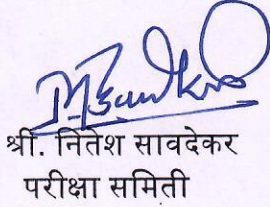 श्री. नितेश सावदेकर
परीक्षा समिती